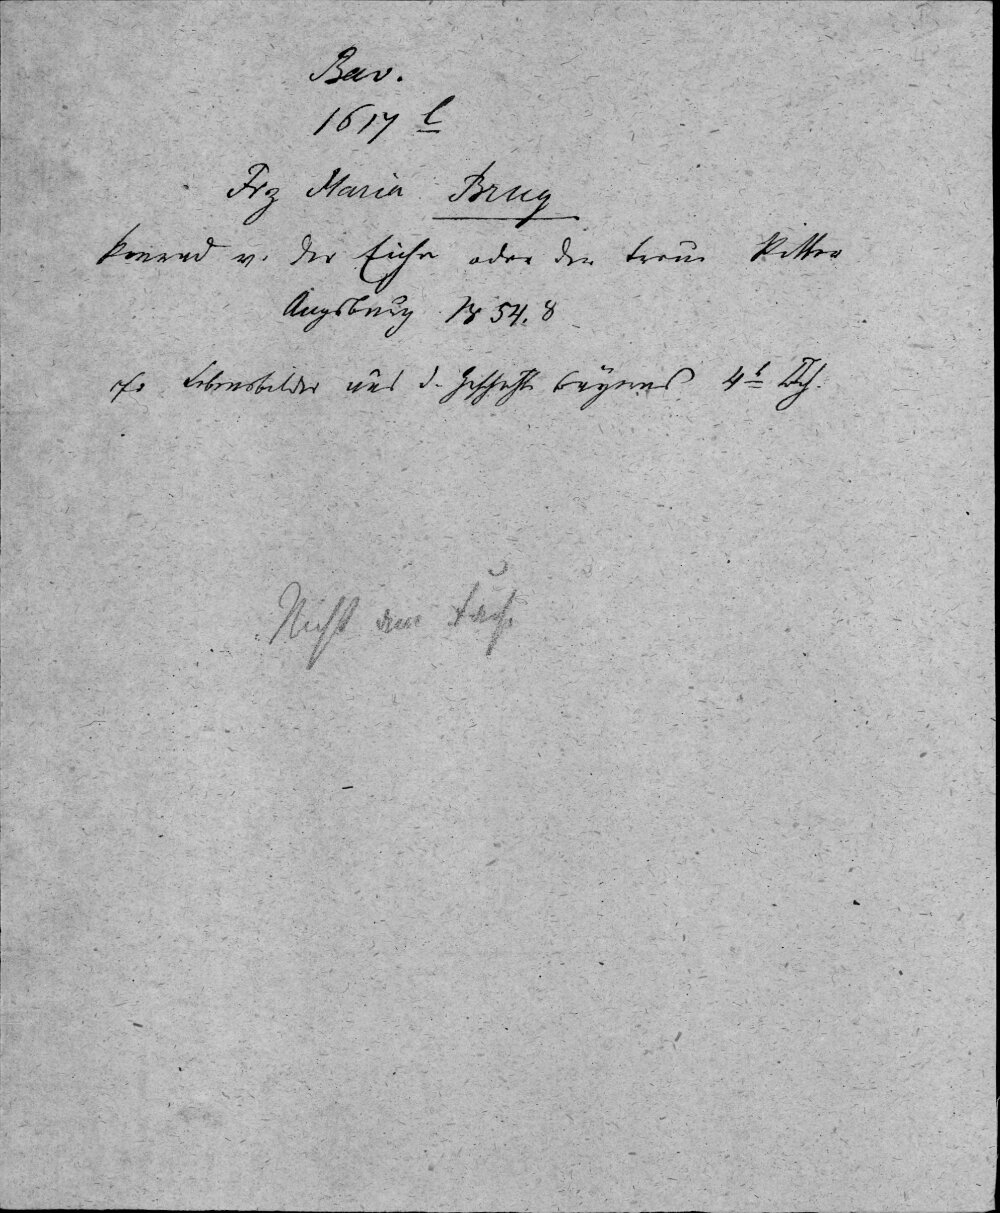 Bav.
1617 l
Frz Maria Brug
Konrad v. der Eiche oder der treue Ritter
Augsburg 1854. 8
cf. Lebensbilder aus d. Geschichte Bayerns 4s
Nicht am